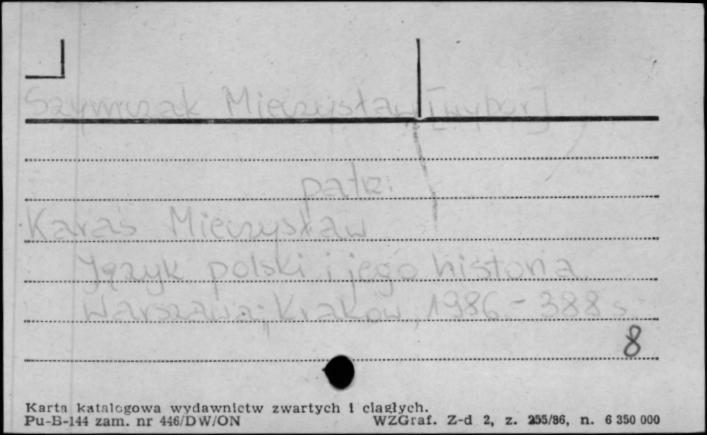 Szymczak Mieczysław [wybór]
patrz:
Karaś Mieczysław
Język polski i jego historia
Warszawa; Kraków, 1986. - 388 s.
8
Karta katalogowa wydawnictw zwartych i ciągłych.
Pu-B-144 zam. nr 446/DW/ON WZGraf. Z-d 2, z. 255/86, n. 6 350 000